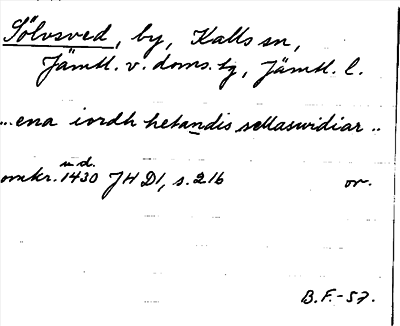 Sölvsved, by, Kalls sn,
Jämtl. v. doms. tg, Jämtl. l.
..ena iordh hetandis sellaswidiar..
u.d.
omkr. 1430 JHD1, s. 216 or.
B.F.-57.